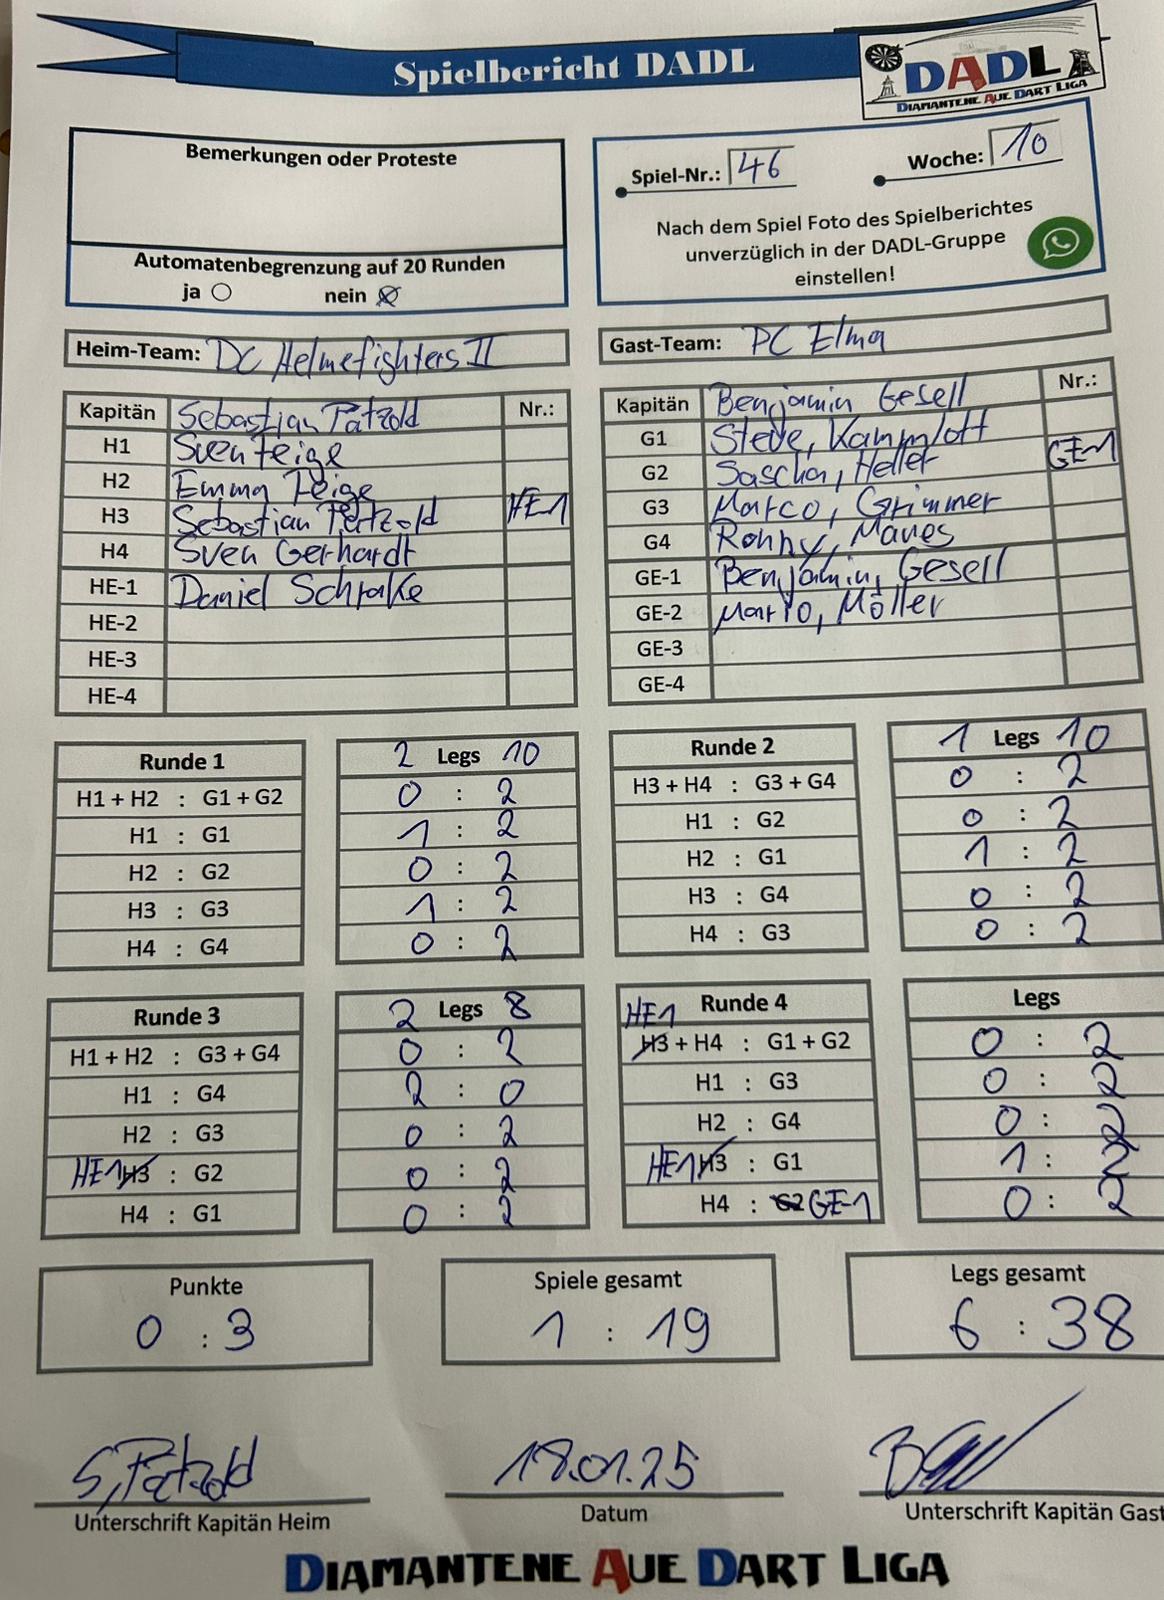 Spielbericht DADL
DADL
DIAMANTENE AUE DART LIGA
Bemerkungen oder Proteste
Automatenbegrenzung auf 20 Runden
ja nein
Spiel-Nr.: 46 Woche: 10
Nach dem Spiel Foto des Spielberichtes
unverzüglich in der DADL-Gruppe
einstellen!
Heim-Team: DC Helmefighters II
Kapitän Sebastian Patzold Nr.:
H1 Sven Feige
H2 Emma Feige
H3 Sebastian Patzold HE1
H4 Sven Gerhardt
HE-1 Daniel Schrake
HE-2
HE-3
HE-4
Gast-Team: PC Elma
Kapitän Benjamin Gesell Nr.:
G1 Steve, Kammlott
G2 Sascha, Heller GE-1
G3 Marco, Grimmer
G4 Ronny, Manes
GE-1 Benjamin, Gesell
GE-2 Mario, Möller
GE-3
GE-4
Runde 1 2 Legs 10
H1 + H2 : G1 + G2 0 : 2
H1 : G1 1 : 2
H2 : G2 0 : 2
H3 : G3 1 : 2
H4 : G4 0 : 2
Runde 2 1 Legs 10
H3 + H4 : G3 + G4 0 : 2
H1 : G2 0 : 2
H2 : G1 1 : 2
H3 : G4 0 : 2
H4 : G3 0 : 2
Runde 3 2 Legs 8
H1 + H2 : G3 + G4 0 : 2
H1 : G4 2 : 0
H2 : G3 0 : 2
HE1 H3 : G2 0 : 2
H4 : G1 0 : 2
HE1 Runde 4 Legs
H3 + H4 : G1 + G2 0 : 2
H1 : G3 0 : 2
H2 : G4 0 : 2
HE1 H3 : G1 1 : 2
H4 : G2 GE-1 0 : 2
Punkte
0 : 3
Spiele gesamt
1 : 19
Legs gesamt
6 : 38
S, Patzold 18.01.25
Unterschrift Kapitän Heim Datum Unterschrift Kapitän Gast
DIAMANTENE AUE DART LIGA